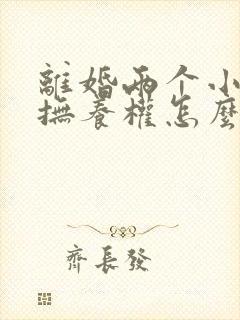 離婚兩个小
撫養權怎麼
齊長發